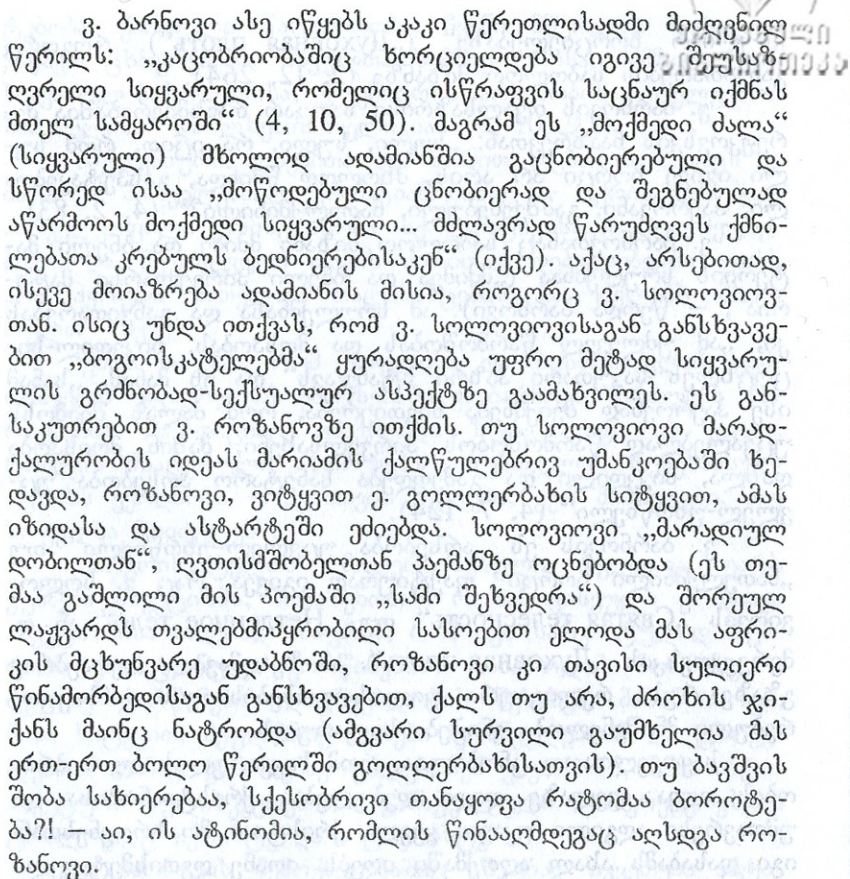 ვ. ბარნოვი ასე იწყებს აკაკი წერეთლისადმი მიძღვნილ
წერილს: „კაცობრიობაშიც ხორციელდება იგივე შეუსაზ-
ღვრელი სიყვარული, რომელიც ისწრაფვის საცნაურ იქმნას
მთელ სამყაროში“ (4, 10, 50). მაგრამ ეს „მოქმედი ძალა“
(სიყვარული) მხოლოდ ადამიანშია გაცნობიერებული და
სწორედ ისაა „მოწოდებული ცნობიერად და შეგნებულად
აწარმოოს მოქმედი სიყვარული... მძლავრად წარუძღვეს ქმნი-
ლებათა კრებულს ბედნიერებისაკენ“ (იქვე). აქაც, არსებითად,
ისევე მოიაზრება ადამიანის მისია, როგორც ვ. სოლოვიოვ-
თან. ისიც უნდა ითქვას, რომ ვ. სოლოვიოვისაგან განსხვავე-
ბით „ბოგოისკატელებმა“ ყურადღება უფრო მეტად სიყვარუ-
ლის გრძნობად-სექსუალურ ასპექტზე გაამახვილეს. ეს გან-
საკუთრებით ვ. როზანოვზე ითქმის. თუ სოლოვიოვი მარად-
ქალურობის იდეას მარიამის ქალწულებრივ უმანკოებაში ხე-
დავდა, როზანოვი, ვიტყვით ე. გოლლერბახის სიტყვით, ამას
იზიდასა და ასტარტეში ეძიებდა. სოლოვიოვი „მარადიულ
დობილთან“, ღვთისმშობელთან პაემანზე ოცნებობდა (ეს თე-
მაა გაშლილი მის პოემაში „სამი შეხვედრა“) და შორეულ
ლაჟვარდს თვალებმიპყრობილი სასოებით ელოდა მას აფრი-
კის მცხუნვარე უდაბნოში, როზანოვი კი თავისი სულიერი
წინამორბედისაგან განსხვავებით, ქალს თუ არა, ძროხის ჯი-
ქანს მაინც ნატრობდა (ამგვარი სურვილი გაუმხელია მას
ერთ-ერთ ბოლო წერილში გოლლერბახისათვის). თუ ბავშვის
შობა სახიერებაა, სქესობრივი თანაყოფა რატომაა ბოროტე-
ბა?! — აი, ის ატინომია, რომლის წინააღმდეგაც აღსდგა რო-
ზანოვი.